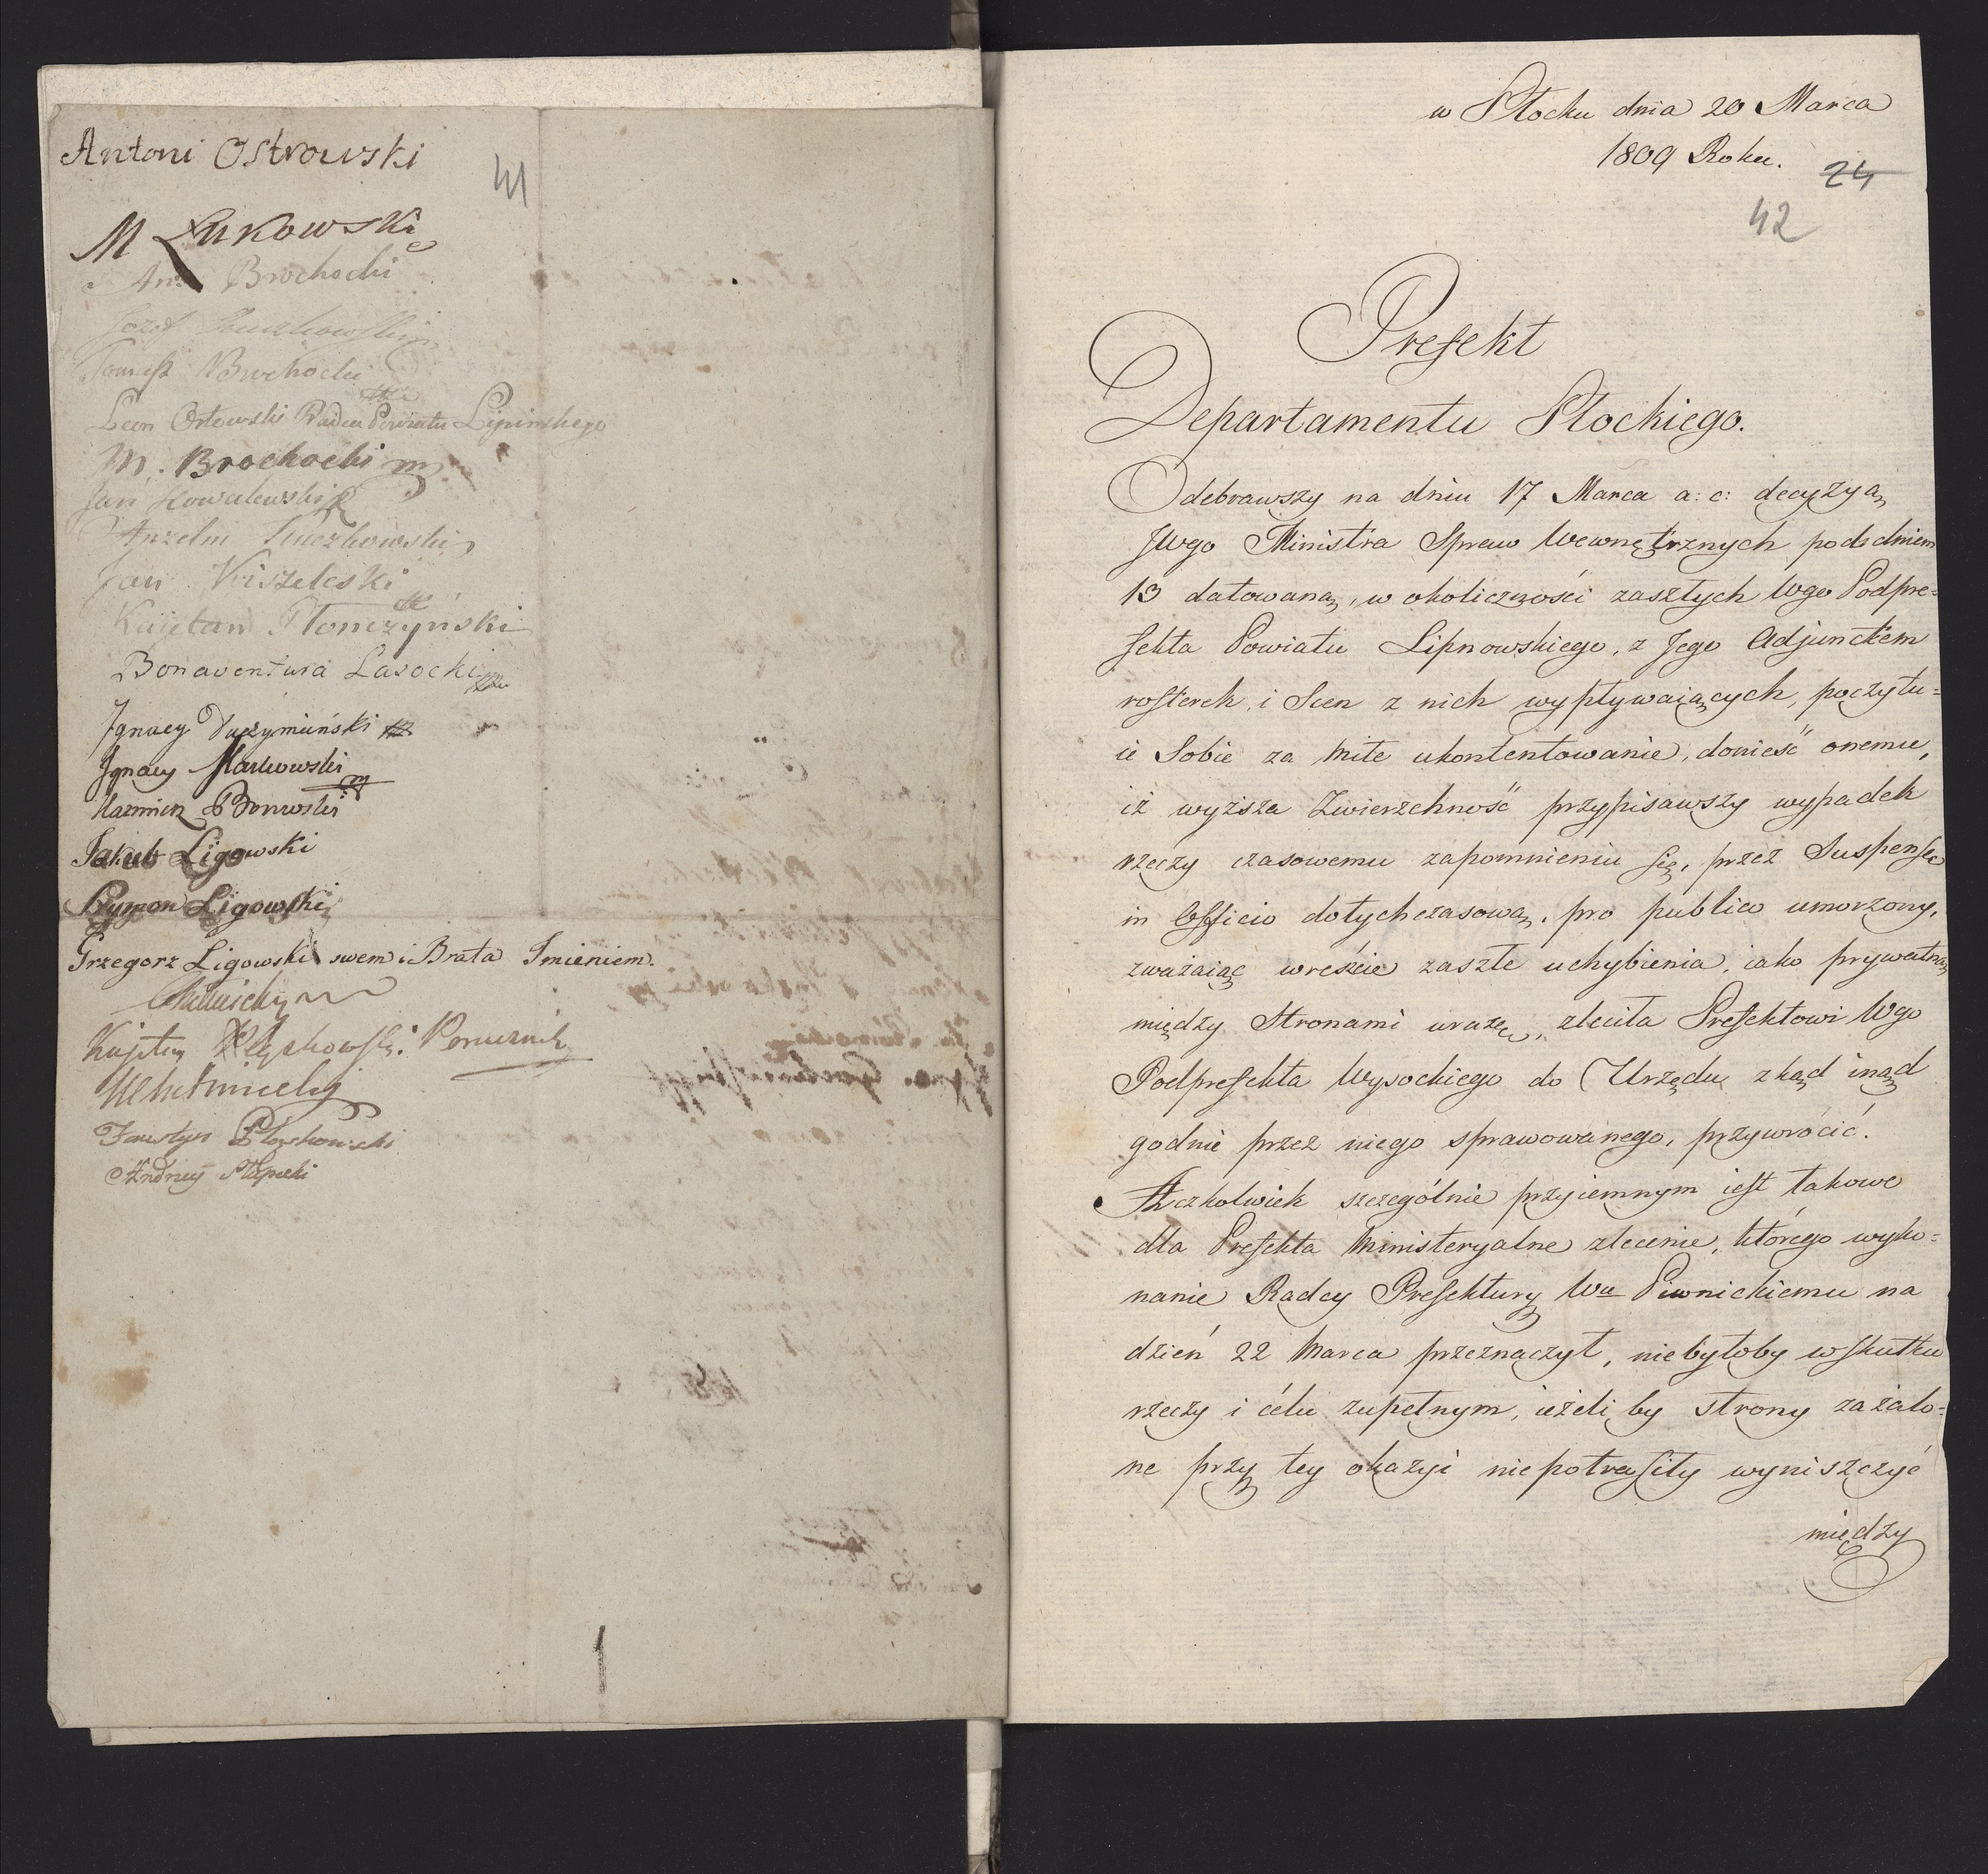 Antoni Ostrowski
41
M Łukowski
Brochocki
Józef
Tomasz Brochocki
Leon Orłowski Radca Powiatu Lipinskego
M. Brochocki
Jan Kowalewski
Anzelm
Jan Kiszeleski
Kajetan Płonczyński
Bonaventura Lasocki
Jgnacy
Jgnacy Markowski
Kazmierz
Jakub Ligowski
Szymon Ligowski
Grzegorz Ligowski swem i Brata Jmieniem.
Kajetan
Faustyn
Andrzey
w Płocku dnia 20 Marca
1809 Roku.
24
42
Prefekt
Departamentu Płockiego.
Odebrawszy na dniu 17 Marca a: c: decyzyą
JWgo Ministra Spraw Wewnętrznych pod dniem
13 datowaną, w okoliczności zaszłych Wgo Podpre=
fekta Powiatu Lipnowskiego, z Jego Adjunctem
rosterek, i Scen z nich wypływaiących, poczytu=
ie Sobie za miłe ukontentowanie, donieść onemu,
iż wyższa Zwierzchność przypisawszy wypadek
rzeczy czasowemu zapomnieniu się, przez Suspensę
in Officio dotychczasową, pro publico umorzony,
zważaiąc wreście zaszłe uchybienia, iako prywatną
między Stronami urazę, zleciła Prefektowi Wgo
Podprefekta Wysockiego do Urzędu zkąd inąd
godnie przez niego sprawowanego, przywrócić.
Aczkolwiek szczególnie przyiemnym iest takowe
dla Prefekta Ministeryalne zlecenie, którego wyko=
nanie Radcy Prefektury Wu Piwnickiemu na
dzień 22 Marca przeznaczył, niebyłoby w skutku
rzeczy i celu zupełnym, ieżeliby strony zażalo=
ne przy tey okazyi niepotrafiły wyniszczyć
między